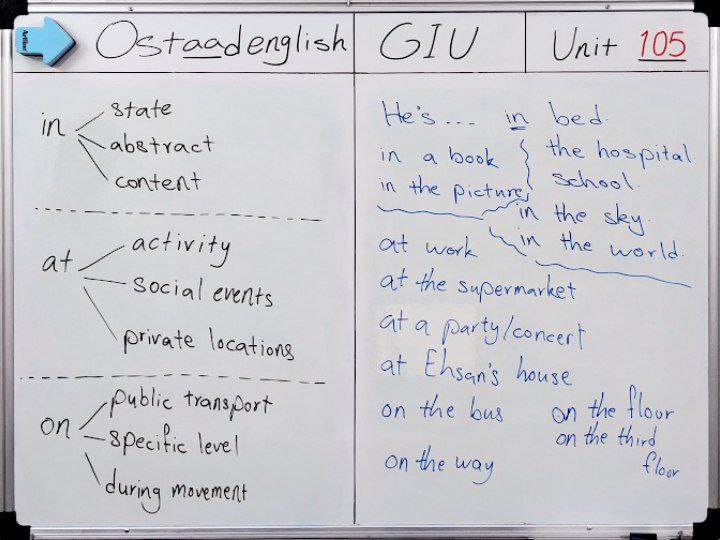 Artline
Ostaadenglish
GIU
Unit 105
in
state
abstract
content
at
activity
social events
private locations
on
public transport
specific level
during movement
He's... in bed.
in a book
the hospital.
in the picture
school.
in the sky.
at work
in the world.
at the supermarket
at a party/concert
at Ehsan's house
on the bus
on the floor
on the third
floor
on the way